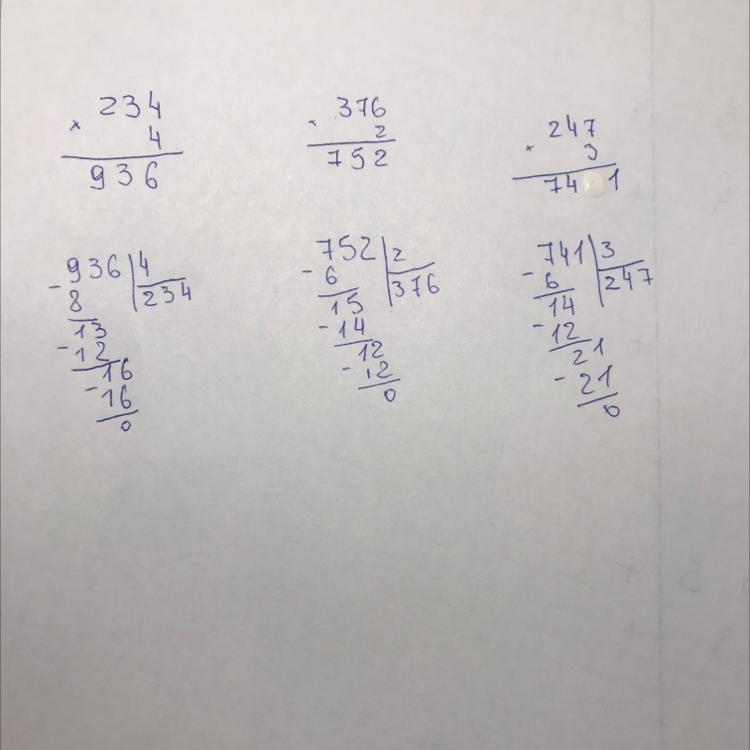 234
× 4
936
936 | 4
- 8 | 234
13
- 12
16
- 16
0
376
× 2
752
752 | 2
- 6 | 376
15
- 14
12
- 12
0
247
× 3
741
741 | 3
- 6 | 247
14
- 12
21
- 21
0